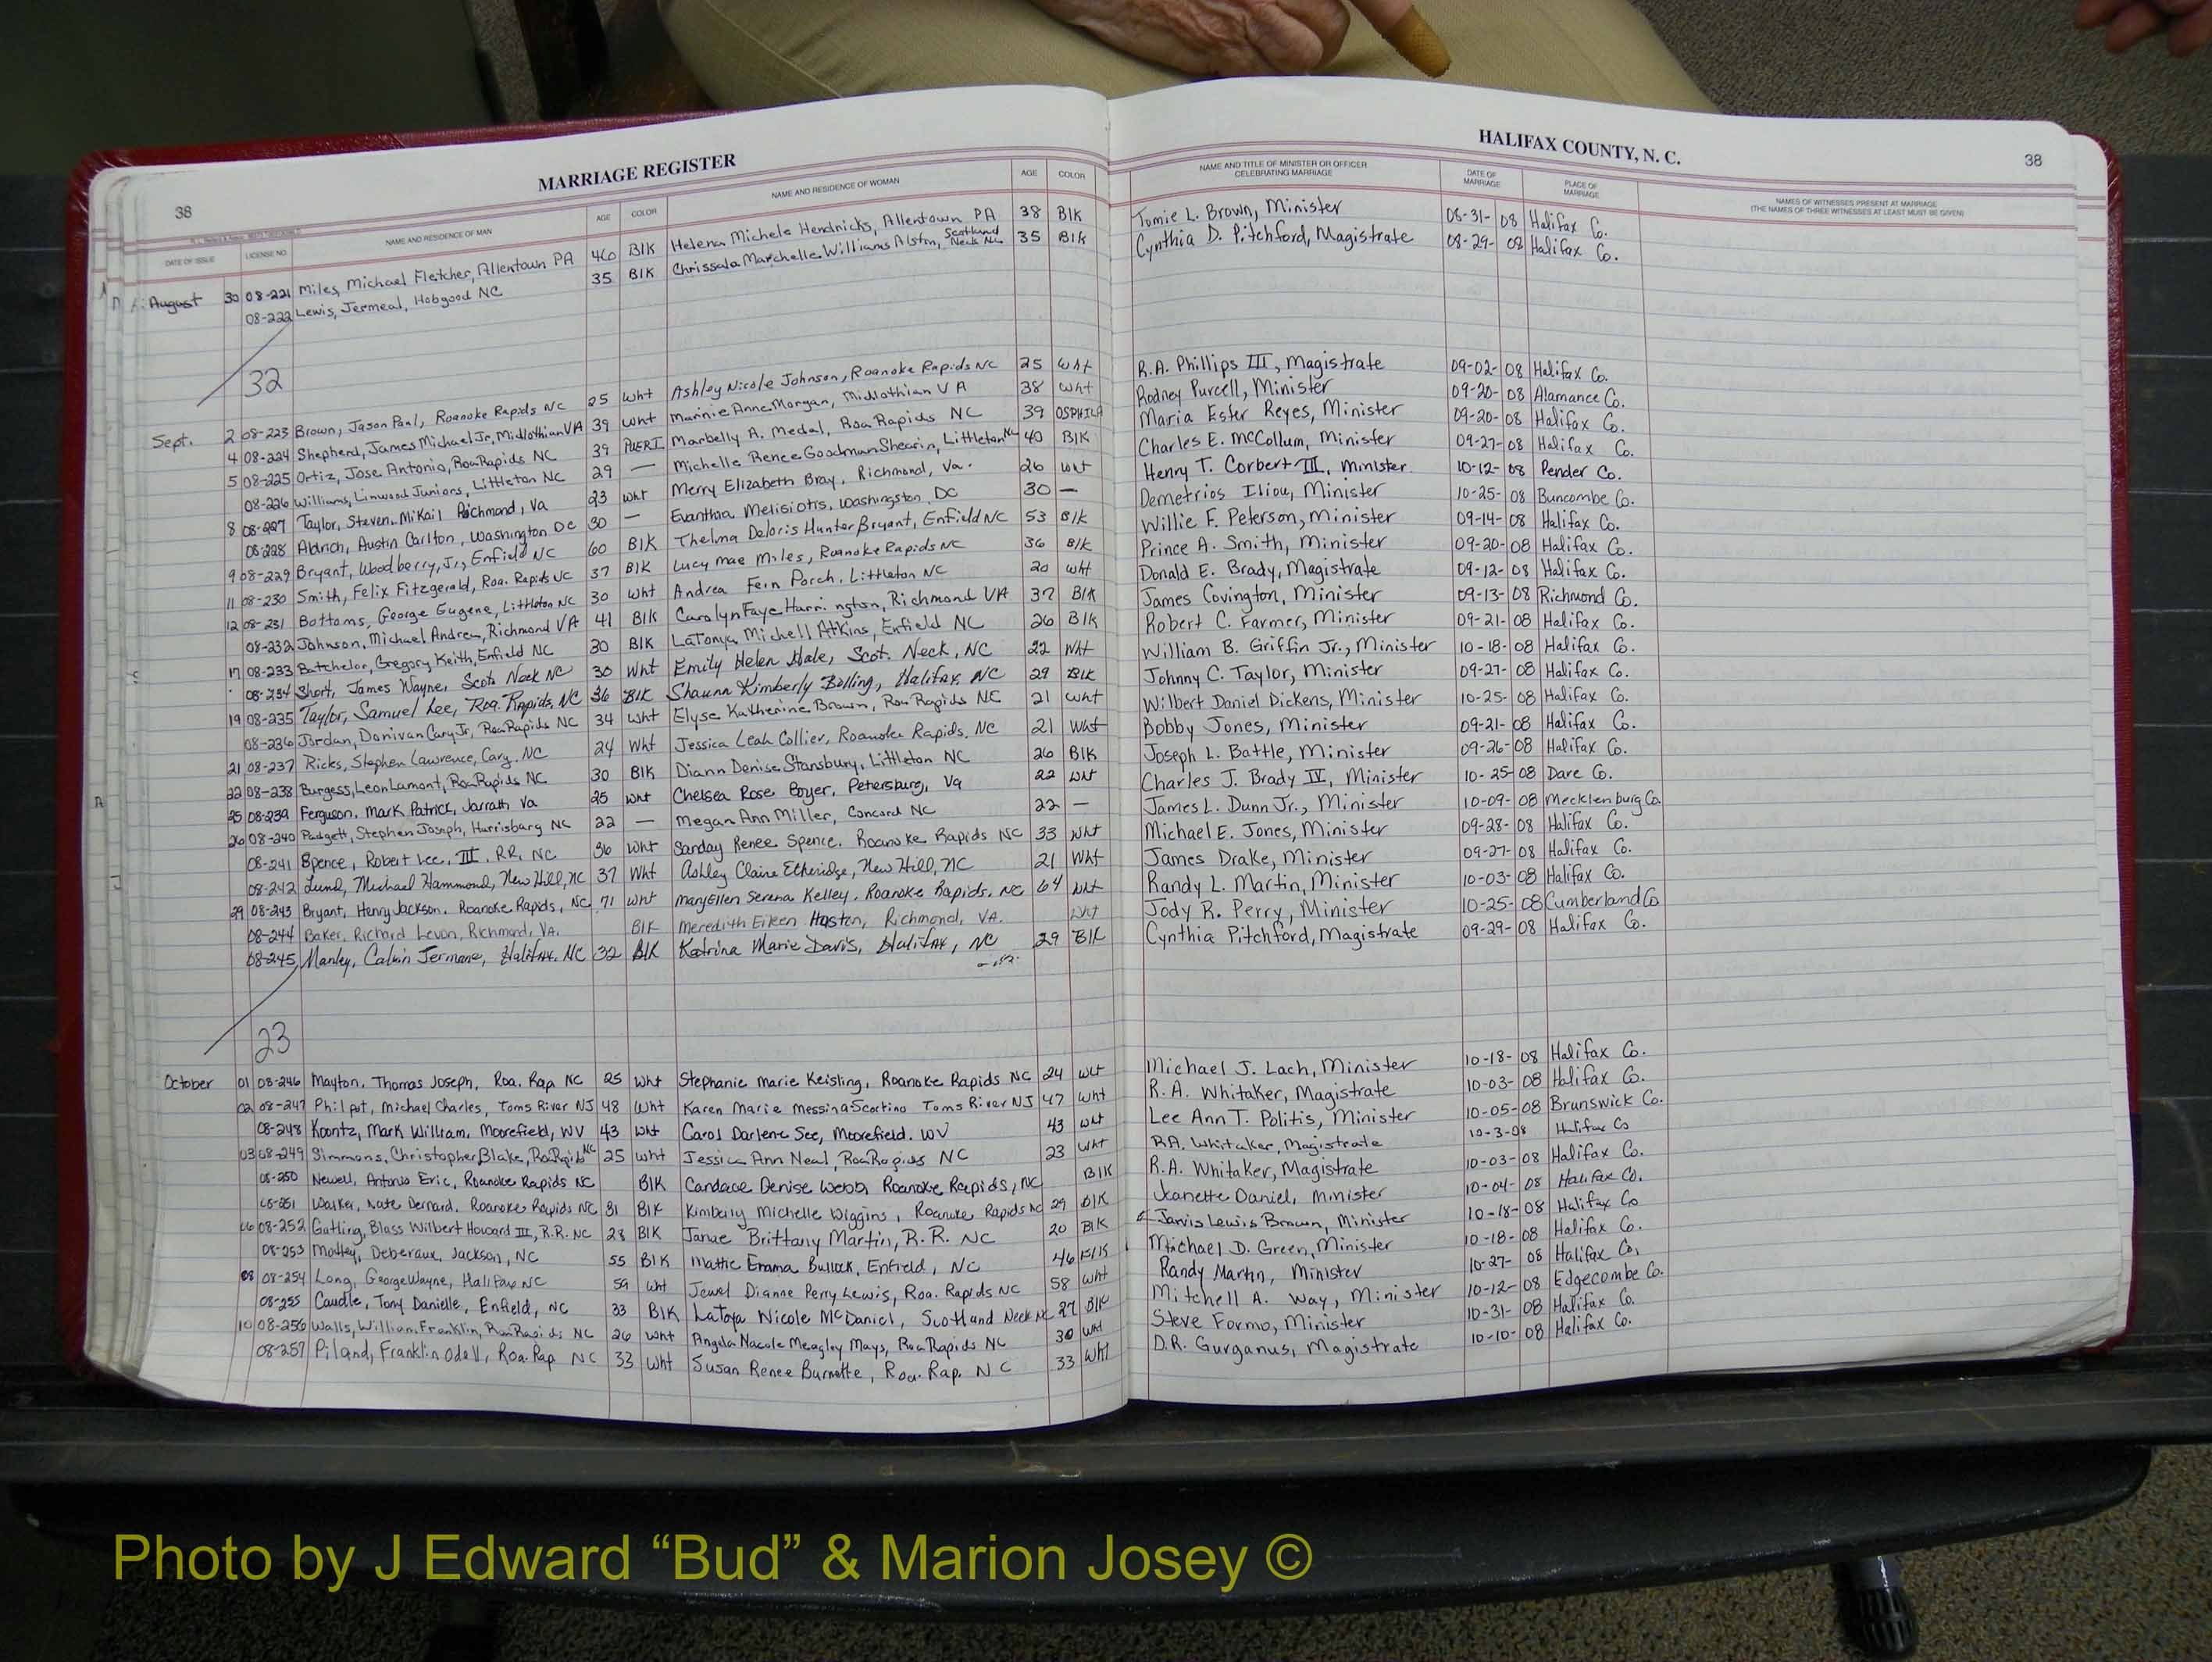 MARRIAGE REGISTER
HALIFAX COUNTY, N. C.
38
38
DATE OF ISSUE LICENSE NO. NAME AND RESIDENCE OF MAN AGE COLOR NAME AND RESIDENCE OF WOMAN AGE COLOR NAME AND TITLE OF MINISTER OR OFFICER CELEBRATING MARRIAGE DATE OF MARRIAGE PLACE OF MARRIAGE NAMES OF WITNESSES PRESENT AT MARRIAGE (THE NAMES OF THREE WITNESSES AT LEAST MUST BE GIVEN)
August 30 08-221 Miles, Michael Fletcher, Allentown PA 46 Blk Helena Michele Hendricks, Allentown PA 38 Blk Tomie L. Brown, Minister 08-31-08 Halifax Co.
08-222 Lewis, Jermeal, Hobgood NC 35 Blk Chrissala Marchelle Williams Alston, Scotland Neck NC 35 Blk Cynthia D. Pitchford, Magistrate 08-29-08 Halifax Co.
32
Sept. 2 08-223 Brown, Jason Paul, Roanoke Rapids NC 25 Wht Ashley Nicole Johnson, Roanoke Rapids NC 25 Wht R.A. Phillips III, Magistrate 09-02-08 Halifax Co.
4 08-224 Shepherd, James Michael Jr, Midlothian VA 39 Wht Mannie Anne Morgan, Midlothian VA 38 Wht Rodney Purcell, Minister 09-20-08 Alamance Co.
5 08-225 Ortiz, Jose Antonio, Roa Rapids NC 39 PUERI Marbelly A. Medal, Roa Rapids NC 39 Maria Ester Reyes, Minister 09-20-08 Halifax Co.
08-226 Williams, Linwood Juniors, Littleton NC 29 — Michelle Renee Goodman Shearin, Littleton NC 40 Blk Charles E. McCollum, Minister 09-27-08 Halifax Co.
8 08-227 Taylor, Steven Mikail Richmond, Va 23 Wht Merry Elizabeth Bray, Richmond, Va. 26 Wht Henry T. Corbert III, Minister 10-12-08 Pender Co.
08-228 Aldrich, Austin Carlton, Washington DC 30 — Evanthia Melisiotis, Washington, DC 30 — Demetrios Iliou, Minister 10-25-08 Buncombe Co.
9 08-229 Bryant, Woodberry, Jr, Enfield NC 60 Blk Thelma Deloris Hunter Bryant, Enfield NC 53 Blk Willie F. Peterson, Minister 09-14-08 Halifax Co.
11 08-230 Smith, Felix Fitzgerald, Roa. Rapids NC 37 Blk Lucy Mae Miles, Roanoke Rapids NC 36 Blk Prince A. Smith, Minister 09-20-08 Halifax Co.
12 08-231 Bottoms, George Eugene, Littleton NC 30 Wht Andrea Fern Porch, Littleton NC 20 Wht Donald E. Brady, Magistrate 09-12-08 Halifax Co.
08-232 Johnson, Michael Andrea, Richmond VA 41 Blk Carolyn Faye Harrington, Richmond VA 37 Blk James Covington, Minister 09-13-08 Richmond Co.
17 08-233 Batchelor, Gregory Keith, Enfield NC 30 Blk LaTonya Michell Atkins, Enfield NC 26 Blk Robert C. Farmer, Minister 09-21-08 Halifax Co.
08-234 Short, James Wayne, Scot. Neck NC 30 Wht Emily Helen Hale, Scot. Neck, NC 22 Wht William B. Griffin Jr., Minister 10-18-08 Halifax Co.
19 08-235 Taylor, Samuel Lee, Roa. Rapids, NC 36 Blk Shaunn Kimberly Billing, Halifax, NC 29 Blk Johnny C. Taylor, Minister 09-27-08 Halifax Co.
08-236 Jordan, Donivan Cary Jr, Roa Rapids NC 34 Wht Elyse Katherine Brown, Roa Rapids NC 21 Wht Wilbert Daniel Dickens, Minister 10-25-08 Halifax Co.
21 08-237 Ricks, Stephen Lawrence, Cary, NC 24 Wht Jessica Leah Collier, Roanoke Rapids, NC 21 Wht Bobby Jones, Minister 09-21-08 Halifax Co.
22 08-238 Burgess, Leon Lamont, Roa Rapids NC 30 Blk Diann Denise Stansbury, Littleton NC 26 Blk Joseph L. Battle, Minister 09-26-08 Halifax Co.
25 08-239 Ferguson, Mark Patrick, Jarratt Va 25 Wht Chelsea Rose Boyer, Petersburg, Va 22 Wht Charles J. Brady IV, Minister 10-25-08 Dare Co.
26 08-240 Padgett, Stephen Joseph, Harrisburg NC 22 — Megan Ann Miller, Concord NC 22 — James L. Dunn Jr., Minister 10-09-08 Mecklenburg Co.
08-241 Spence, Robert Lee, III, RR, NC 36 Wht Sanday Renee Spence, Roanoke Rapids NC 33 Wht Michael E. Jones, Minister 09-28-08 Halifax Co.
08-242 Lund, Michael Hammond, New Hill, NC 37 Wht Ashley Claire Etheridge, New Hill, NC 21 Wht James Drake, Minister 09-27-08 Halifax Co.
29 08-243 Bryant, Henry Jackson, Roanoke Rapids, NC 71 Wht MaryEllen Serena Kelley, Roanoke Rapids, NC 64 Wht Randy L. Martin, Minister 10-03-08 Halifax Co.
08-244 Baker, Richard Levon, Richmond, VA. Blk Meredith Eileen Hasten, Richmond, VA. Wht Jody R. Perry, Minister 10-25-08 Cumberland Co
08-245 Manley, Calvin Jermane, Halifax, NC 32 Blk Katrina Marie Davis, Halifax, NC 29 Blk Cynthia Pitchford, Magistrate 09-29-08 Halifax Co.
23
October 01 08-246 Mayton, Thomas Joseph, Roa. Rap NC 25 Wht Stephanie Marie Keisling, Roanoke Rapids NC 24 Wht Michael J. Lach, Minister 10-18-08 Halifax Co.
02 08-247 Philpot, Michael Charles, Toms River NJ 48 Wht Karen Marie Messina Scortino Toms River NJ 47 Wht R.A. Whitaker, Magistrate 10-03-08 Halifax Co.
08-248 Koontz, Mark William, Moorefield, WV 43 Wht Carol Darlene See, Moorefield, WV 43 Wht Lee Ann T. Politis, Minister 10-05-08 Brunswick Co.
03 08-249 Simmons, Christopher Blake, Roa Rapids NC 25 Wht Jessica Ann Neal, Roa Rapids NC 23 Wht R.A. Whitaker, Magistrate 10-3-08 Halifax Co
08-250 Newell, Antonio Eric, Roanoke Rapids NC Blk Candace Denise Webb Roanoke Rapids, NC Blk R.A. Whitaker, Magistrate 10-03-08 Halifax Co.
08-251 Walker, Nate Bernard, Roanoke Rapids NC 31 Blk Kimberly Michelle Wiggins, Roanoke Rapids NC 29 Blk Jeanette Daniel, Minister 10-04-08 Halifax Co.
06 08-252 Gatling, Blass Wilbert Howard III, R.R. NC 28 Blk Janae Brittany Martin, R.R. NC 20 Blk Jarvis Lewis Brown, Minister 10-18-08 Halifax Co
08-253 Motley, Deberaux, Jackson, NC 55 Blk Mattie Emma Bullock, Enfield, NC 46 Blk Michael D. Green, Minister 10-18-08 Halifax Co.
08 08-254 Long, George Wayne, Halifax NC 59 Wht Jewel Dianne Perry Lewis, Roa. Rapids NC 58 Wht Randy Martin, Minister 10-27-08 Halifax Co.
08-255 Caudle, Tony Danielle, Enfield, NC 33 Blk LaToya Nicole McDaniel, Scotland Neck NC 27 Blk Mitchell A. Way, Minister 10-12-08 Edgecombe Co.
10 08-256 Walls, William Franklin, Roa Rapids NC 26 Wht Angela Nacole Meagley Mays, Roa Rapids NC 30 Wht Steve Formo, Minister 10-31-08 Halifax Co.
08-257 Piland, Franklin Odell, Roa. Rap NC 33 Wht Susan Renee Burnette, Roa. Rap. NC 33 Wht D.R. Gurganus, Magistrate 10-10-08 Halifax Co.
Photo by J Edward “Bud” & Marion Josey ©